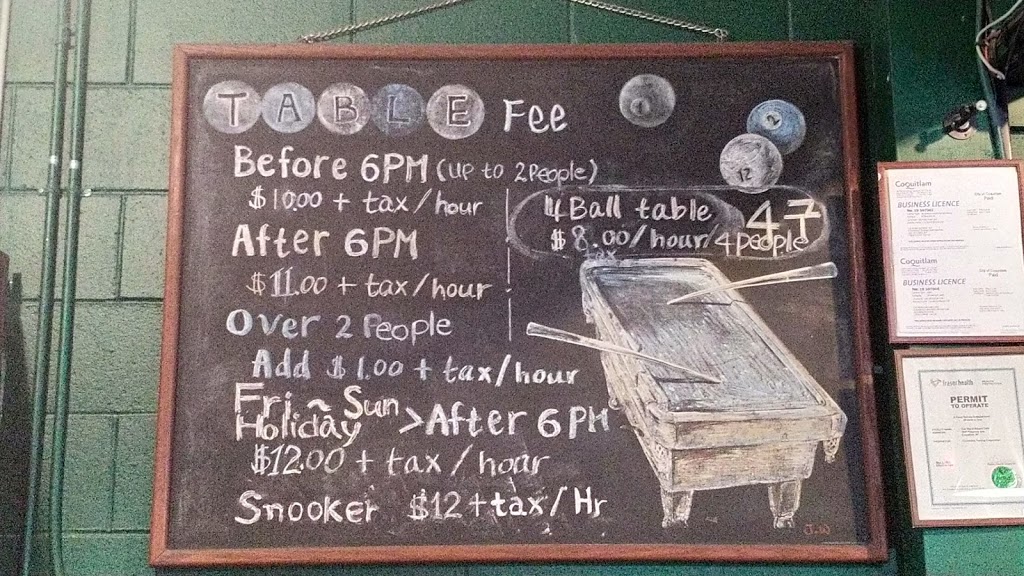 TABLE Fee
Before 6PM (up to 2People)
$10.00 + tax/hour
After 6PM
$11.00 + tax/hour
Over 2 People
Add $1.00 + tax/hour
Fri. ~ Sun
Holiday >After 6PM
$12.00 + tax/hour
Snooker $12 + tax/Hr
4Ball table 47
$8.00/hour/4people
tax
1
2
12
J.W
Coquitlam
BUSINESS LICENCE
Coquitlam
BUSINESS LICENCE
fraserhealth
PERMIT
TO OPERATE